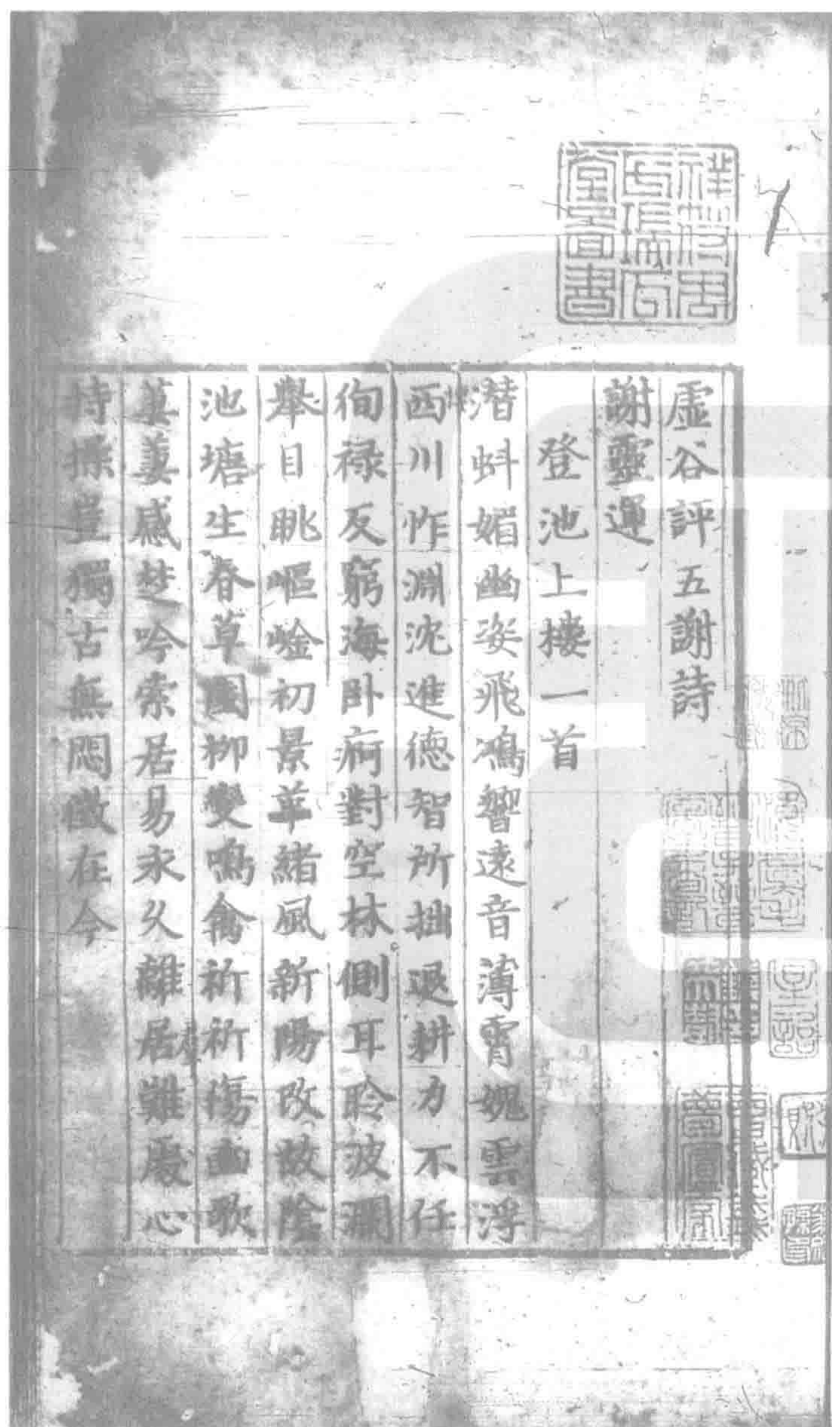 虛谷評五謝詩
謝靈運
登池上樓一首
潛蚪媚幽姿飛鴻響遠音薄霄媿雲浮
西川怍淵沈進德智所拙退耕力不任
徇禄反窮海卧痾對空林側耳聆波瀾
舉目眺嶇嶔初景革緒風新陽改故陰
池塘生春草園柳變鳴禽祈祈傷豳歌
萋萋感楚吟索居易永久離居難處心
持操豈獨古無悶徵在今